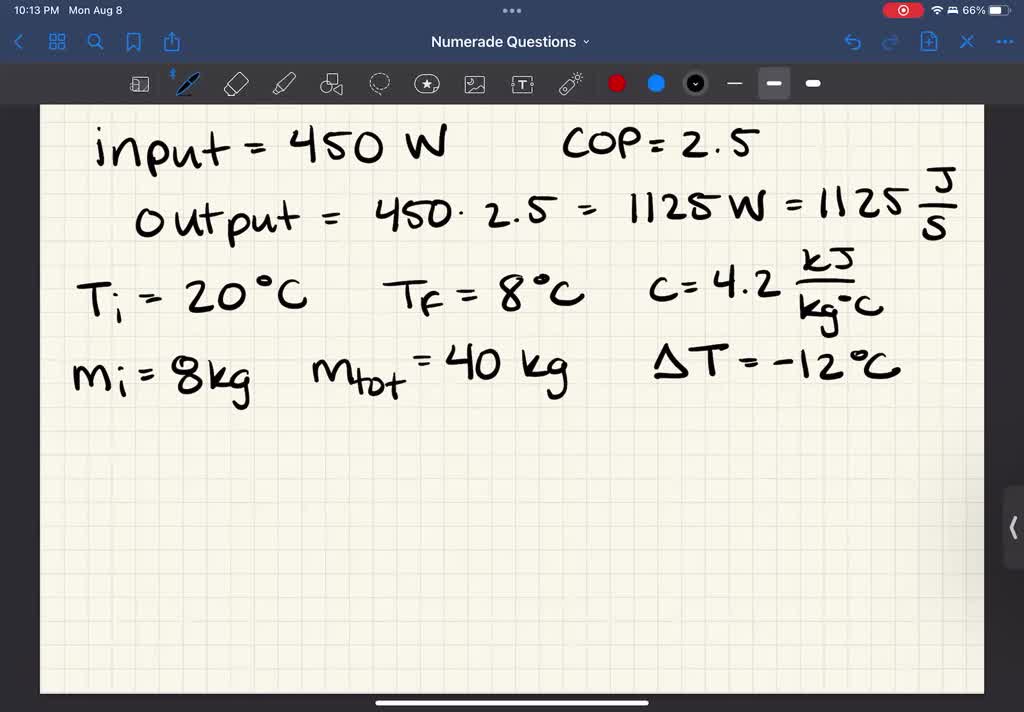 10:13 PM Mon Aug 8
66%
Numerade Questions
input = 450 W COP = 2.5
output = 450 · 2.5 = 1125 W = 1125 J/S
Ti = 20°C TF = 8°C C = 4.2 kJ/kg°C
mi = 8kg mtot = 40 kg ΔT = -12°C